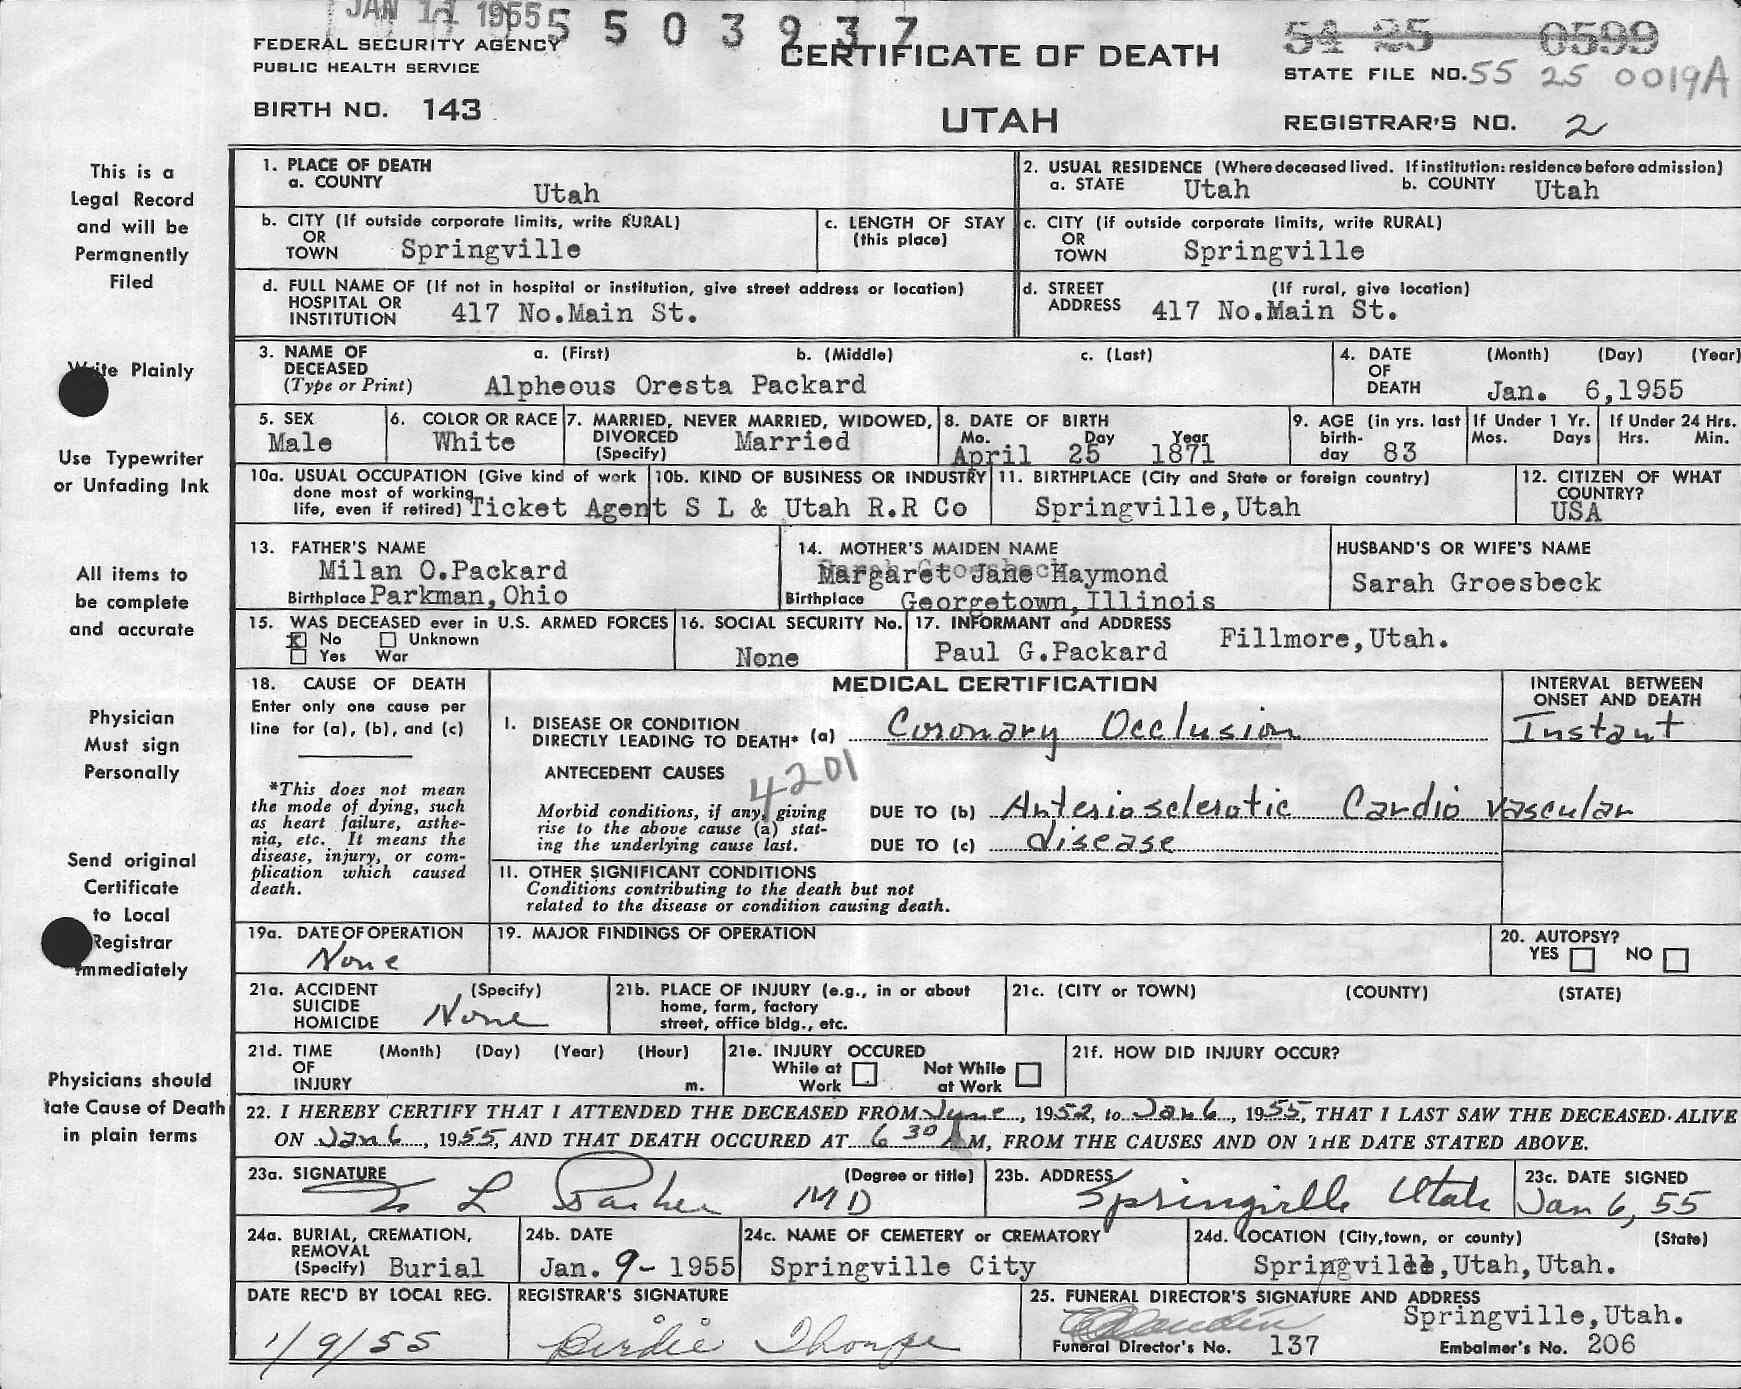 JAN 11 1955
5 5 0 3 9 3 7
54 25 0599
FEDERAL SECURITY AGENCY
PUBLIC HEALTH SERVICE
CERTIFICATE OF DEATH
STATE FILE NO. 55 25 0019A
BIRTH NO. 143
UTAH
REGISTRAR'S NO. 2
This is a
Legal Record
and will be
Permanently
Filed
Write Plainly
Use Typewriter
or Unfading Ink
All items to
be complete
and accurate
Physician
Must sign
Personally
Send original
Certificate
to Local
Registrar
Immediately
Physicians should
tate Cause of Death
in plain terms
1. PLACE OF DEATH
a. COUNTY
Utah
2. USUAL RESIDENCE (Where deceased lived. If institution: residence before admission)
a. STATE Utah b. COUNTY Utah
b. CITY (If outside corporate limits, write RURAL)
OR
TOWN Springville
c. LENGTH OF STAY
(this place)
c. CITY (If outside corporate limits, write RURAL)
OR
TOWN Springville
d. FULL NAME OF (If not in hospital or institution, give street address or location)
HOSPITAL OR
INSTITUTION 417 No.Main St.
d. STREET (If rural, give location)
ADDRESS 417 No.Main St.
3. NAME OF DECEASED
(Type or Print)
a. (First) b. (Middle) c. (Last)
Alpheous Oresta Packard
4. DATE OF DEATH
(Month) (Day) (Year)
Jan. 6,1955
5. SEX
Male
6. COLOR OR RACE
White
7. MARRIED, NEVER MARRIED, WIDOWED,
DIVORCED
(Specify) Married
8. DATE OF BIRTH
Mo. Day Year
April 25 1871
9. AGE (in yrs. last
birth-
day 83
If Under 1 Yr.
Mos. Days
If Under 24 Hrs.
Hrs. Min.
10a. USUAL OCCUPATION (Give kind of work
done most of working
life, even if retired) Ticket Agent
10b. KIND OF BUSINESS OR INDUSTRY
S L & Utah R.R Co
11. BIRTHPLACE (City and State or foreign country)
Springville,Utah
12. CITIZEN OF WHAT
COUNTRY?
USA
13. FATHER'S NAME
Milan O.Packard
Birthplace Parkman,Ohio
14. MOTHER'S MAIDEN NAME
Margaret Jane Haymond
Birthplace Georgetown,Illinois
HUSBAND'S OR WIFE'S NAME
Sarah Groesbeck
15. WAS DECEASED ever in U.S. ARMED FORCES
X No Unknown
Yes War
16. SOCIAL SECURITY No.
None
17. INFORMANT and ADDRESS
Paul G.Packard Fillmore,Utah.
18. CAUSE OF DEATH
Enter only one cause per
line for (a), (b), and (c)
*This does not mean
the mode of dying, such
as heart failure, asthe-
nia, etc. It means the
disease, injury, or com-
plication which caused
death.
MEDICAL CERTIFICATION
INTERVAL BETWEEN
ONSET AND DEATH
I. DISEASE OR CONDITION
DIRECTLY LEADING TO DEATH* (a) Coronary Occlusion Instant
ANTECEDENT CAUSES 4201
Morbid conditions, if any, giving
rise to the above cause (a) stat-
ing the underlying cause last.
DUE TO (b) Arteriosclerotic Cardio vascular
DUE TO (c) disease
II. OTHER SIGNIFICANT CONDITIONS
Conditions contributing to the death but not
related to the disease or condition causing death.
19a. DATE OF OPERATION
None
19. MAJOR FINDINGS OF OPERATION
20. AUTOPSY?
YES NO
21a. ACCIDENT (Specify)
SUICIDE
HOMICIDE None
21b. PLACE OF INJURY (e.g., in or about
home, farm, factory
street, office bldg., etc.
21c. (CITY or TOWN) (COUNTY) (STATE)
21d. TIME (Month) (Day) (Year) (Hour)
OF
INJURY m.
21e. INJURY OCCURED
While at Work Not While at Work
21f. HOW DID INJURY OCCUR?
22. I HEREBY CERTIFY THAT I ATTENDED THE DECEASED FROM June, 1952, to Jan 6, 1955, THAT I LAST SAW THE DECEASED ALIVE
ON Jan 6, 1955, AND THAT DEATH OCCURED AT 6 30 A M, FROM THE CAUSES AND ON THE DATE STATED ABOVE.
23a. SIGNATURE (Degree or title)
L MD
23b. ADDRESS
Springville Utah
23c. DATE SIGNED
Jan 6, 55
24a. BURIAL, CREMATION,
REMOVAL
(Specify) Burial
24b. DATE
Jan. 9- 1955
24c. NAME OF CEMETERY or CREMATORY
Springville City
24d. LOCATION (City,town, or county) (State)
Springville,Utah,Utah.
DATE REC'D BY LOCAL REG.
1/9/55
REGISTRAR'S SIGNATURE
Birdie Thorpe
25. FUNERAL DIRECTOR'S SIGNATURE AND ADDRESS
Springville,Utah.
Funeral Director's No. 137 Embalmer's No. 206